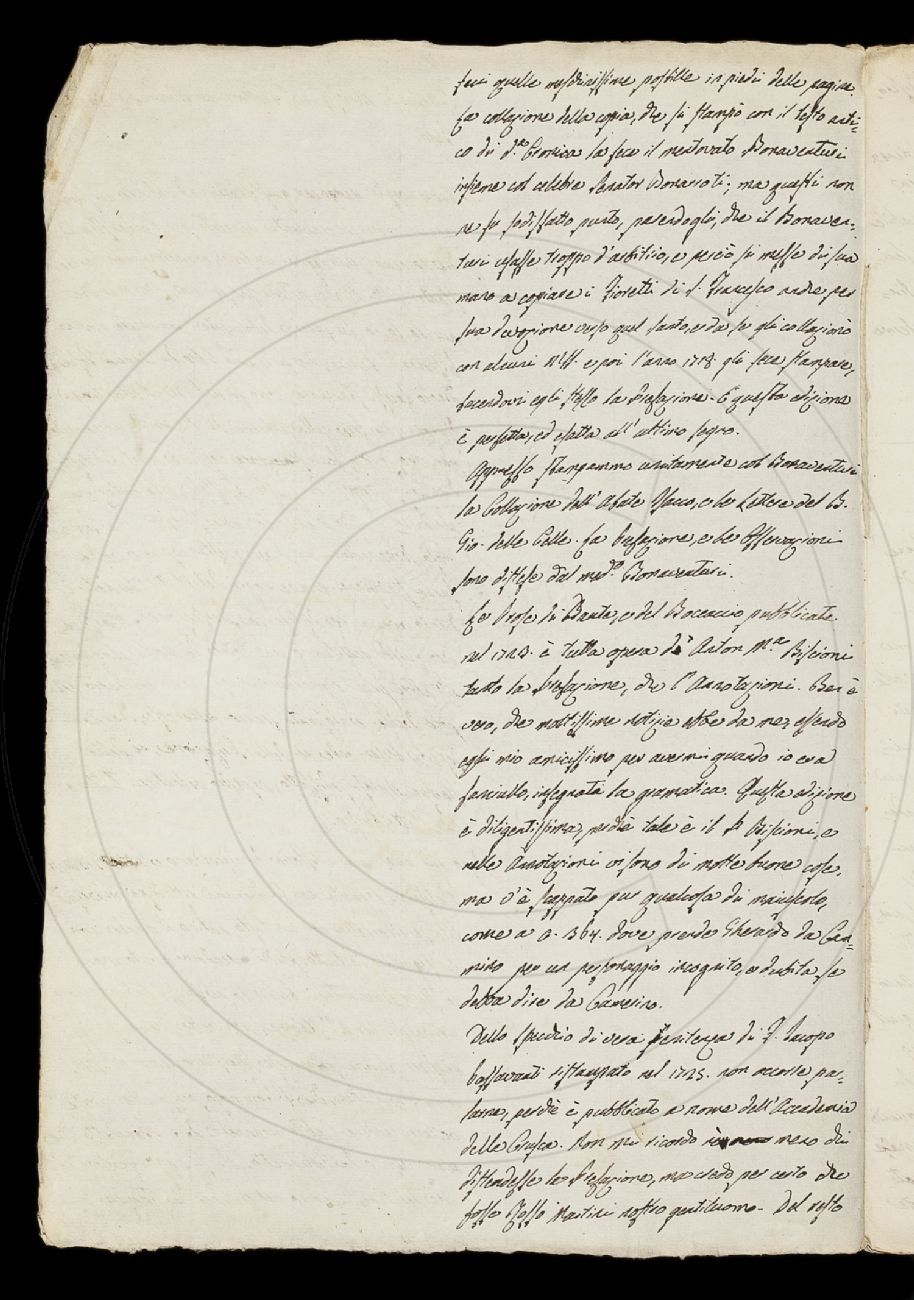 feci quelle meschinissime postille in piedi delle pagine.
La collazione della copia, che si stampò con il testo anti=
co di d.ª Cronica la fece il mentovato Bonaventuri
insieme col celebre Senator Bonarroti; ma questi non
ne fu sodisfatto punto, parendogli, che il Bonaven=
turi usasse troppo d'arbitrio, e perciò si messe di sua
mano a copiare i Fioretti di S. Francesco anche per
sua devozione verso quel santo, e da se gli collazionò
con alcuni MSS. e poi l'anno 1718. gli fece stampare,
facendovi egli stesso la Prefazione. E questa edizione
è perfetta, ed esatta all'ultimo segno.
Appresso stampammo unitamente col Bonaventuri
la Collazione dell'Abate Isaac, e le Lettere del B.
Gio. delle Celle. La Prefazione, e le Osservazioni
sono distese dal med.º Bonaventuri.
Le Prose di Dante, e del Boccaccio pubblicate
nel 1723. è tutta opera di Anton M.ª Biscioni
tanto la Prefazione, che l'Annotazioni. Ben è
vero, che moltissime notizie ebbe da me, essendo
egli mio amicissimo per avermi quando io era
fanciullo, insegnata la gramatica. Questa edizione
è diligentissima, perchè tale è il S.r Biscioni, e
nelle Annotazioni vi sono di molte buone cose,
ma v'è scappato pur qualcosa di maiuscolo,
come a c. 364. dove prende Gherardo da Cam=
mino per un personaggio incognito, e dubita, se
debba dire da Camerino.
Dello Specchio di vera penitenza di F. Iacopo
Passavanti ristampato nel 1725. non occorre par=
larne, perchè è pubblicato a nome dell'Accademia
della Crusca. Non mi ricordo meno chi
distendesse la Prefazione, ma credo per certo che
fosse Rosso Martini nostro gentiluomo. Del resto